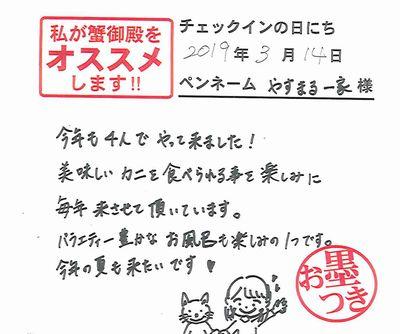 私が蟹御殿を
オススメ
します!!
チェックインの日にち
2019年 3月 14日
ペンネーム やすまる一家 様
今年も4人で やって来ました!
美味しい カニを食べられる事を 楽しみに
毎年 来させて 頂いています。
バラエティー豊かな お風呂も楽しみの1つです。
今年の夏も来たいです♥
お墨つき